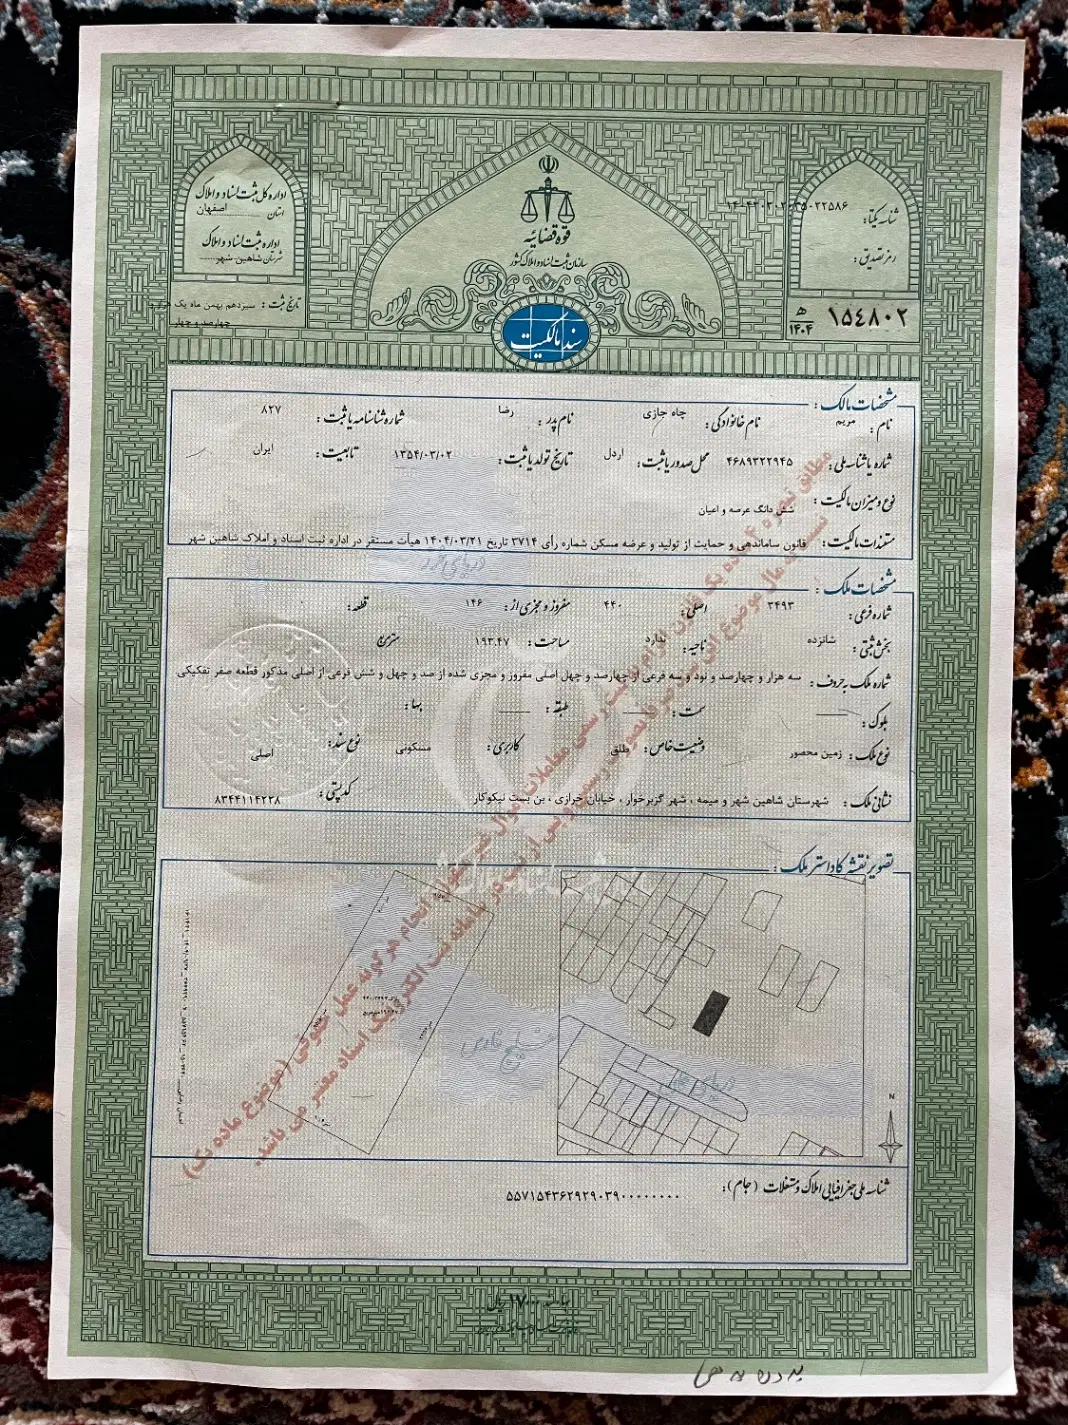 اداره کل ثبت اسناد و املاک
استان اصفهان
اداره ثبت اسناد و املاک
شهرستان شاهین شهر
تاریخ ثبت : سیزدهم بهمن ماه یک
چهارصد و چهار
قوه قضائیه
سازمان ثبت اسناد و املاک کشور
سند مالکیت
شناسه یکتا:
رمز تصدیق :
۱۵۴۸۰۲ ه ۱۴۰۴
مشخصات مالک :
نام : مریم نام خانوادگی : چاه جازی نام پدر : رضا شماره شناسنامه یا ثبت : ۸۲۷
شماره یا شناسه ملی : ۴۶۸۹۳۲۲۹۴۵ محل صدور یا ثبت : اردل تاریخ تولد یا ثبت : ۱۳۵۴/۰۳/۰۲ تابعیت : ایران
نوع و میزان مالکیت : شش دانگ عرصه و اعیان
مستندات مالکیت : قانون ساماندهی و حمایت از تولید و عرضه مسکن شماره رأی ۳۷۱۴ تاریخ ۱۴۰۴/۰۳/۲۱ هیأت مستقر در اداره ثبت اسناد و املاک شاهین شهر
دریای خزر
مشخصات ملک :
شماره فرعی : ۳۴۹۳ اصلی : ۴۴۰ مفروز و مجزی از : ۱۴۶ قطعه :
بخش ثبتی : شانزده ناحیه : ندارد مساحت : ۱۹۳.۴۷ مترمربع
شماره ملک به حروف : سه هزار و چهارصد و نود و سه فرعی از چهارصد و چهل اصلی مفروز و مجزی شده از صد و چهل و شش فرعی از اصلی مذکور قطعه صفر تفکیکی
بلوک : سمت : طبقه : بها :
نوع ملک : زمین محصور وضعیت خاص : طلق کاربری : مسکونی نوع سند : اصلی
نشانی ملک : شهرستان شاهین شهر و میمه ، شهر گزبرخوار ، خیابان خرازی ، بن بست نیکوکار کدپستی : ۸۳۴۴۱۱۴۲۳۸
مطابق تبصره ۴ ماده یک قانون الزام به ثبت رسمی معاملات اموال غیر منقول، انجام هر گونه عمل حقوقی (موضوع ماده یک)
نسبت به مال موضوع این سند صرفا بصورت رسمی و پس از ثبت در سامانه ثبت الکترونیک اسناد معتبر می باشد.
تصویر نقشه کاداستر ملک :
خلیج فارس
دریای عمان
N
شناسه ملی جغرافیایی املاک و مستغلات (جام):
۵۵۷۱۵۴۳۶۲۹۲۹۰۳۹۰۰۰۰۰۰۰۰۰
بهاء سند ۱۷۰۰۰ ریال